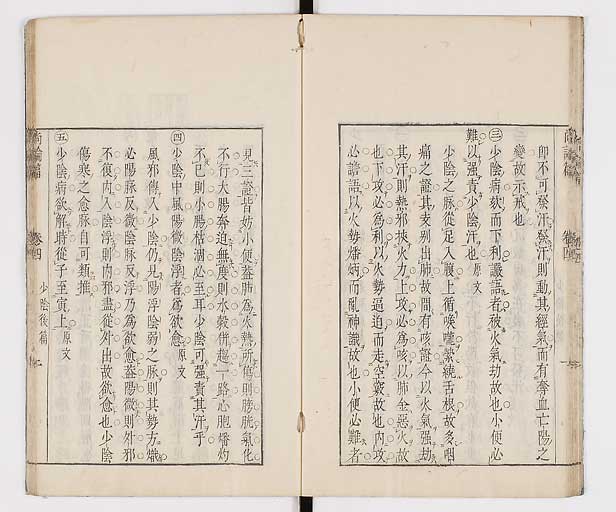 即不可發汗發汗則動其經氣而有奪血亡陽之
變故示戒也
㊂少陰病欬而下利讝語者被火氣劫故也小便必
難以强責少陰汗也原文
少陰之脉從足入腹上循喉嚨縈繞舌根故多咽
痛之證其支別出肺故間有咳證今以火氣强劫
其汗則熱邪挾火力上攻必為咳以肺金惡火故
也下攻必為利以火勢逼迫而走空竅故也内攻
必讝語以火勢燔焫而亂神識故也小便必難者
見三證皆妨小便葢肺為火熱所傷則膀胱氣化
不行大腸奔迫無度則水穀併趨一路心胞燔灼
不已則小腸枯涸必至耳少陰可强責其汗乎
㊃少陰中風陽微陰浮者為欲愈原文
風邪傳入少陰仍見陽浮陰弱之脉則其勢方熾
必陽脉反微陰脉反浮乃為欲愈葢陽微則外邪
不復内入陰浮則内邪盡從外出故欲愈也少陰
傷寒之愈脉自可類推
㊄少陰病欲解時從子至寅上原文
尚論篇
卷四
少陰後篇